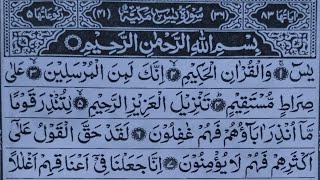 اٰیاتها ۸۳ (۳۶) سُوْرَةُ يٰسٓ مَكِّيَّةٌ (۴۱) رکوعاتها ۵
بِسْمِ اللهِ الرَّحْمٰنِ الرَّحِيْمِ
يٰسٓ ۝۱ وَالْقُرْاٰنِ الْحَكِيْمِ ۝۲ اِنَّكَ لَمِنَ الْمُرْسَلِيْنَ ۝۳ عَلٰى
صِرَاطٍ مُّسْتَقِيْمٍ ۝۴ تَنْزِيْلَ الْعَزِيْزِ الرَّحِيْمِ ۝۵ لِتُنْذِرَ قَوْمًا
مَّاۤ اُنْذِرَ اٰبَآؤُهُمْ فَهُمْ غٰفِلُوْنَ ۝۶ لَقَدْ حَقَّ الْقَوْلُ عَلٰۤى
اَكْثَرِهِمْ فَهُمْ لَا يُؤْمِنُوْنَ ۝۷ اِنَّا جَعَلْنَا فِيْۤ اَعْنَاقِهِمْ اَغْلٰلًا